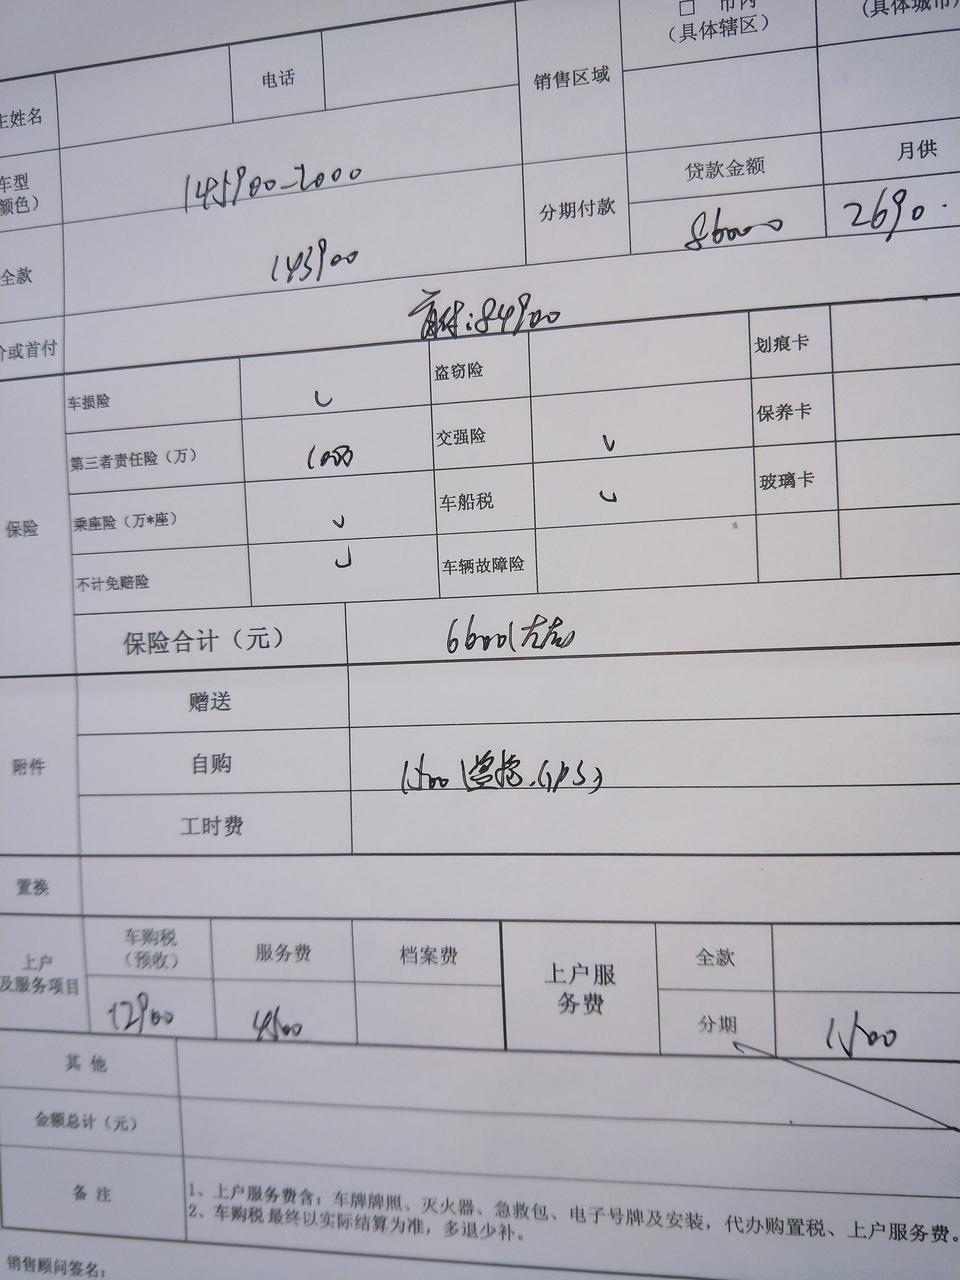 □ 市内
（具体辖区）
（具体城市）
主姓名
电话
销售区域
车型
颜色）
145900-2000
分期付款
贷款金额
月供
86000
2690.
全款
143900
价或首付
首付:84900
保险
车损险
盗窃险
划痕卡
第三者责任险（万）
交强险
保养卡
乘座险（万*座）
车船税
玻璃卡
不计免赔险
车辆故障险
保险合计（元）
6600(左右)
附件
赠送
自购
1500
GPS)
工时费
置换
上户
及服务项目
车购税
（预收）
服务费
档案费
上户服
务费
全款
12900
4500
分期
1500
其 他
金额总计（元）
备 注
1、上户服务费含：车牌牌照、灭火器、急救包、电子号牌及安装，代办购置税、上户服务费。
2、车购税最终以实际结算为准，多退少补。
销售顾问签名：